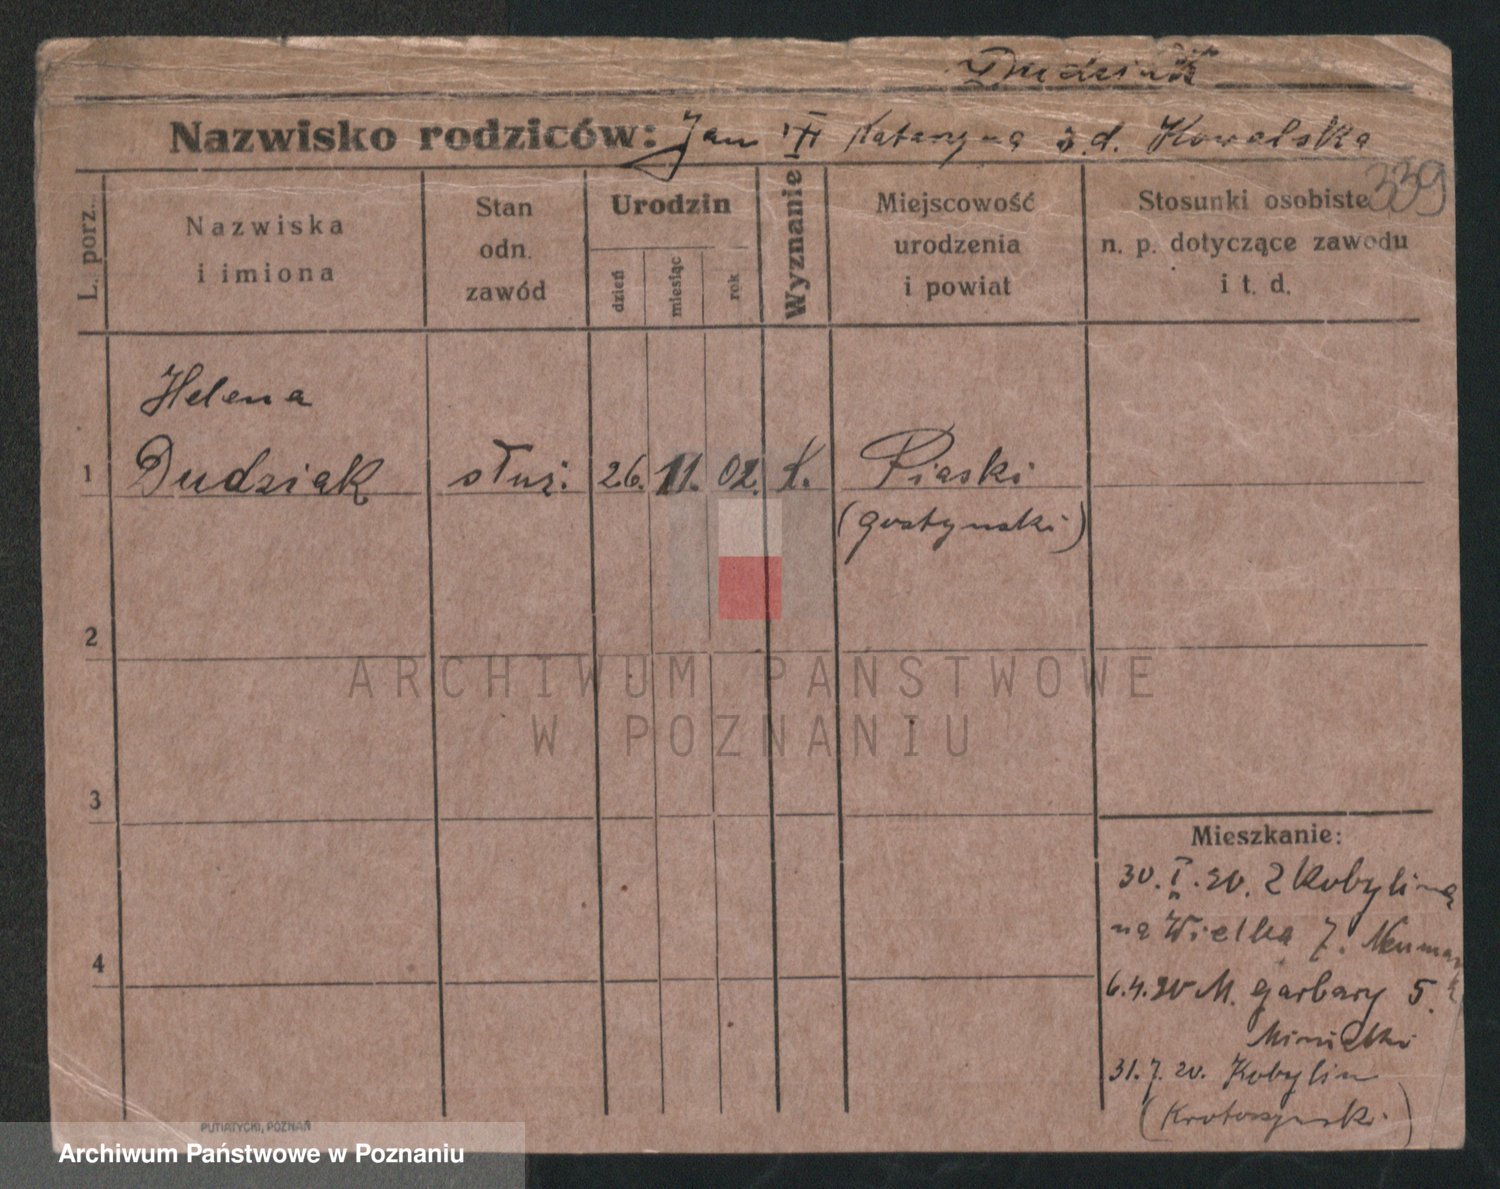 Dudziak
Nazwisko rodziców: Jan Katarzyna z.d. Kowalska
339
L. porz.
Nazwiska
i imiona
Stan
odn.
zawód
Urodzin
dzień
miesiąc
rok
Wyznanie
Miejscowość
urodzenia
i powiat
Stosunki osobiste
n. p. dotyczące zawodu
i t. d.
Helena
1 Dudziak służ. 26. 11. 02. k. Piaski
(gostynski)
2
ARCHIWUM PAŃSTWOWE
W POZNANIU
3
Mieszkanie:
30. I. 20. z Kobylina
na Wielka 7. Neumann
4
6.4.20 M. Garbary 5.
31.7.20. Kobylin
(Krotoszynski)
PUTIATYCKI, POZNAŃ
Archiwum Państwowe w Poznaniu